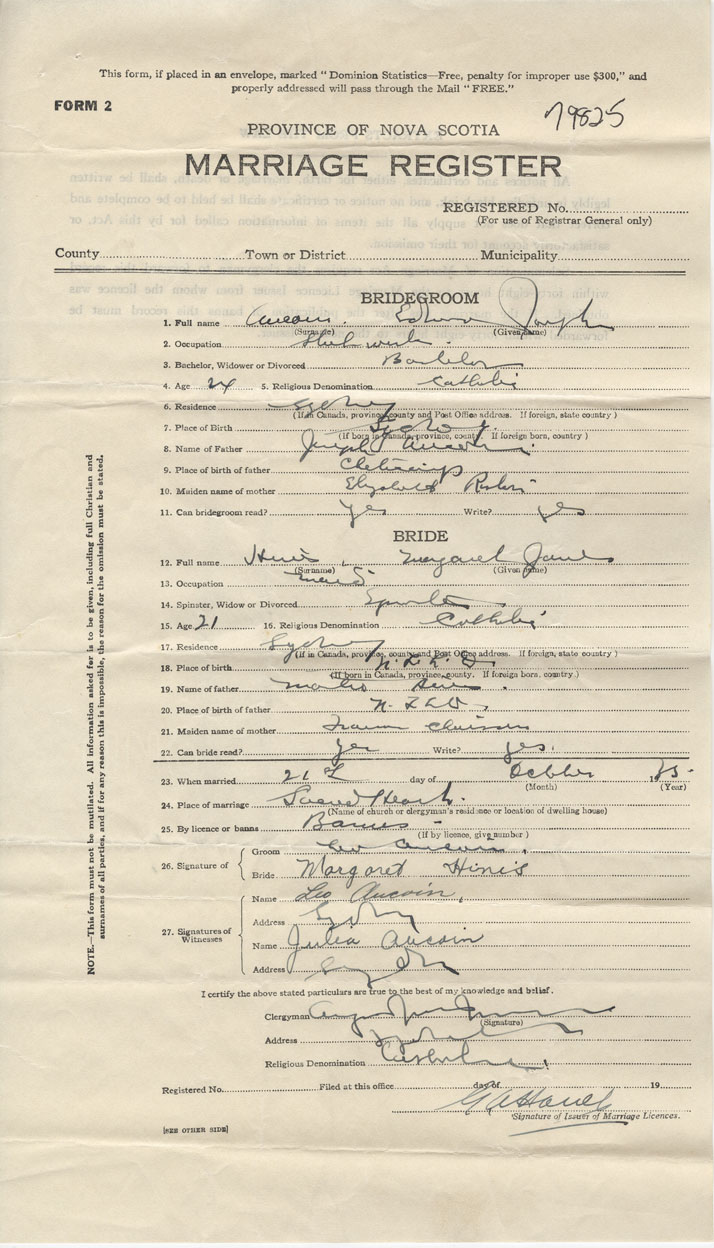 This form, if placed in an envelope, marked "Dominion Statistics—Free, penalty for improper use $300," and
properly addressed will pass through the Mail "FREE."
FORM 2
79825
PROVINCE OF NOVA SCOTIA
MARRIAGE REGISTER
REGISTERED No.
(For use of Registrar General only)
County Town or District Municipality
BRIDEGROOM
1. Full name Aucoin Joseph
(Surname) (Given name)
2. Occupation
3. Bachelor, Widower or Divorced Bachelor
4. Age 24 5. Religious Denomination Catholic
6. Residence Sydney
(If in Canada, province, county and Post Office address. If foreign, state country)
7. Place of Birth Sydney
(If born in Canada, province, county. If foreign born, country)
8. Name of Father Joseph Aucoin
9. Place of birth of father Cheticamp
10. Maiden name of mother Elizabeth
11. Can bridegroom read? yes Write? yes
BRIDE
12. Full name Hinis, Margaret
(Surname) (Given name)
13. Occupation
14. Spinster, Widow or Divorced Spinster
15. Age 21 16. Religious Denomination Catholic
17. Residence Sydney
(If in Canada, province, county and Post Office address. If foreign, state country)
18. Place of birth
(If born in Canada, province, county. If foreign born, country)
19. Name of father
20. Place of birth of father
21. Maiden name of mother
22. Can bride read? yes Write? yes.
23. When married 21st day of October 19
(Month) (Year)
24. Place of marriage Sacred Heart.
(Name of church or clergyman's residence or location of dwelling house)
25. By licence or banns Banns
(If by licence, give number)
26. Signature of
Groom Aucoin
Bride Margaret Hinis
27. Signatures of Witnesses
Name Leo Aucoin,
Address Sydney
Name Julia Aucoin
Address Sydney
I certify the above stated particulars are true to the best of my knowledge and belief.
Clergyman
(Signature)
Address Sydney
Religious Denomination Catholic
Registered No. Filed at this office day of 19
Signature of Issuer of Marriage Licences.
[SEE OTHER SIDE]
NOTE.—This form must not be mutilated. All information asked for is to be given, including full Christian and
surnames of all parties, and if for any reason this is impossible, the reason for the omission must be stated.